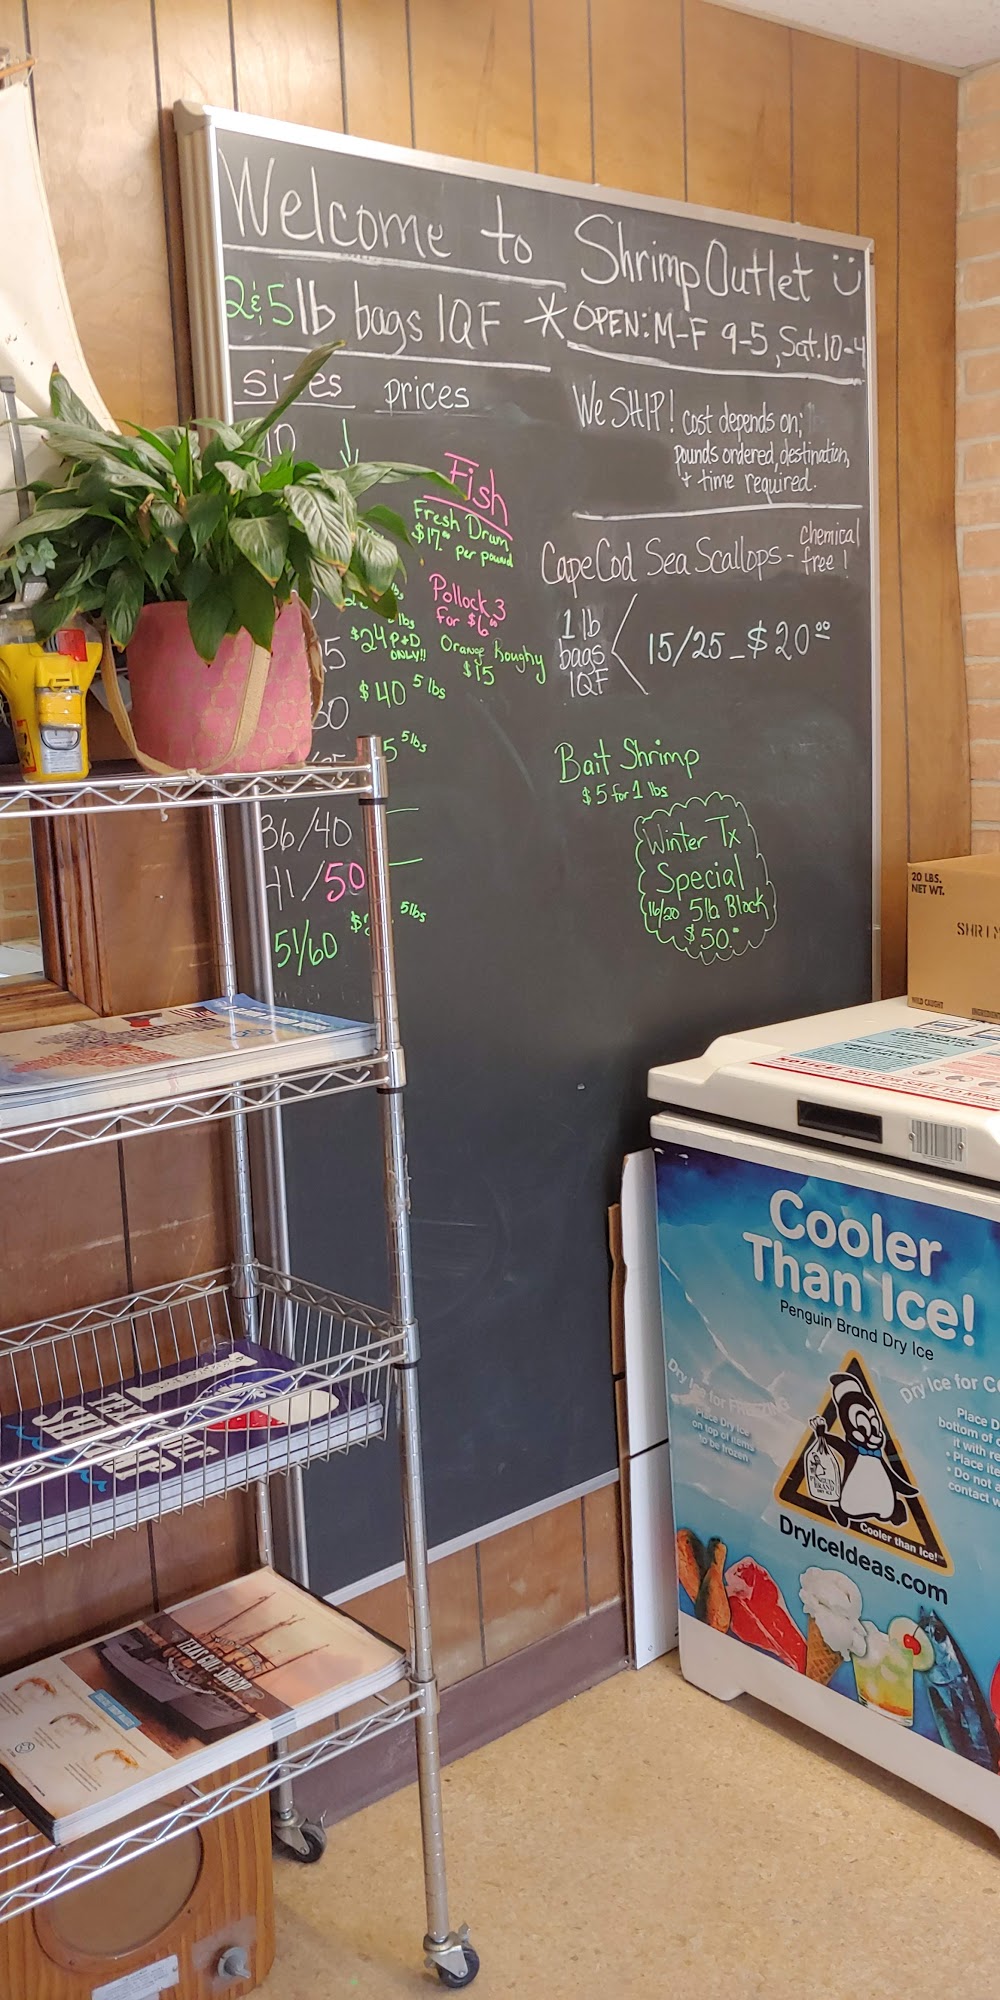 Welcome to Shrimp Outlet
2 & 5 lb bags IQF * OPEN: M-F 9-5, Sat. 10-4
sizes prices
10
Fish
Fresh Drum
$17.00 per pound
Pollock 3
for $6
Orange Roughy
$15
lbs
lbs
$24 P+D
ONLY!!
$40 5 lbs
5 5 lbs
36/40
41/50
51/60
5 lbs
We SHIP! cost depends on;
pounds ordered, destination,
+ time required.
Cape Cod Sea Scallops - chemical
free!
1 lb
bags
IQF
15/25 - $20.00
Bait Shrimp
$5 for 1 lbs
Winter Tx
Special
16/20 5lb Block
$50.00
20 LBS.
NET WT.
SHRIM
WILD CAUGHT
Cooler
Than Ice!
Penguin Brand Dry Ice
Dry Ice for FREEZING
Place Dry Ice
on top of items
to be frozen
Dry Ice for Co
Place D
bottom of c
it with re
• Place ite
• Do not a
contact w
PENGUIN
BRAND
DRY ICE
Cooler than Ice!
DryIceIdeas.com